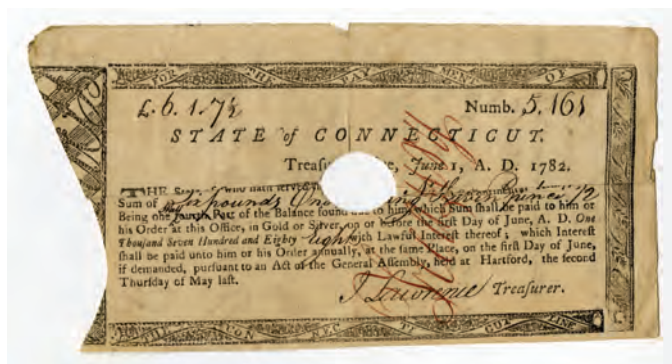 FOR THE PAYMENT OF
£. 6. 1. 7½ Numb. 5.161
STATE of CONNECTICUT.
Treasu e, June 1, A. D. 1782.
THE who hath served
Sum of Six pounds One Seven pence ½
Being one Part of the Balance found to him which Sum shall be paid to him or
his Order at this Office, in Gold or Silver, on or before the first Day of June, A. D. One
Thousand Seven Hundred and Eighty Eight with Lawful Interest thereof; which Interest
shall be paid unto him or his Order annually, at the same Place, on the first Day of June,
if demanded, pursuant to an Act of the General Assembly, held at Hartford, the second
Thursday of May last.
J Lawrence Treasurer.